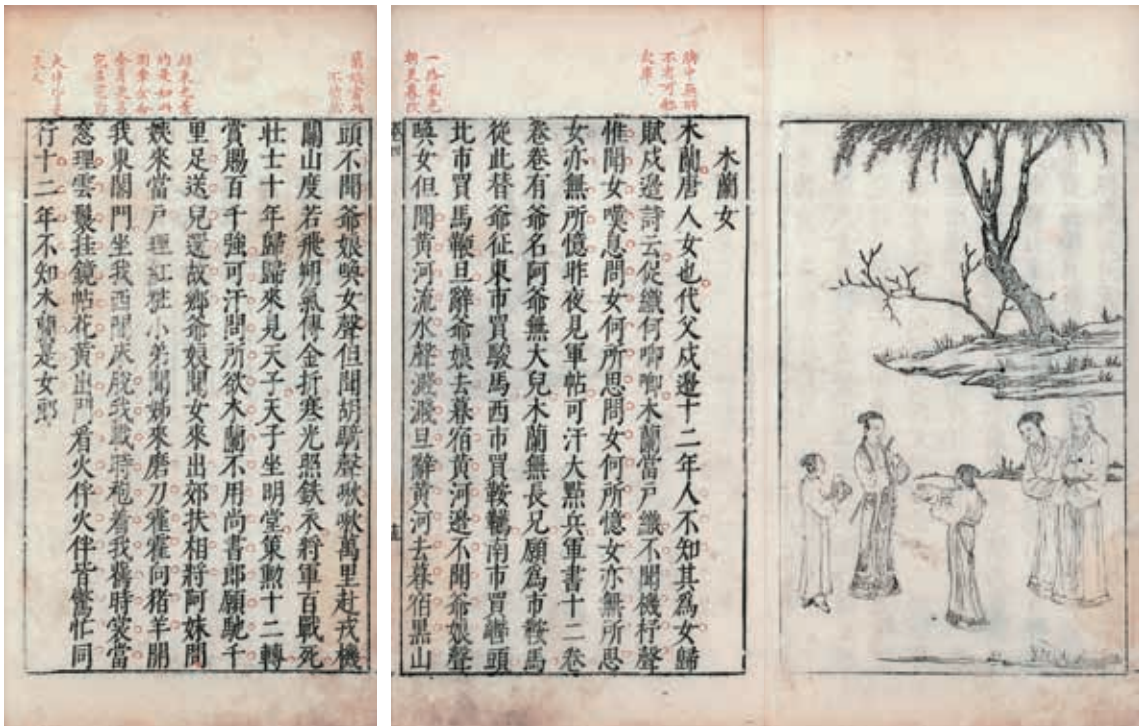 木蘭女
木蘭唐人女也代父戍邊十二年人不知其為女歸
賦戍邊詩云促織何唧唧木蘭當戶織不聞機杼聲
惟聞女嘆息問女何所思問女何所憶女亦無所思
女亦無所憶昨夜見軍帖可汗大點兵軍書十二卷
卷卷有爺名阿爺無大兒木蘭無長兄願為市鞍馬
從此替爺征東市買駿馬西市買鞍韉南市買轡頭
北市買馬鞭旦辭爺娘去暮宿黃河邊不聞爺娘聲
喚女但聞黃河流水聲濺濺旦辭黃河去暮宿黑山
頭不聞爺娘喚女聲但聞胡騎聲啾啾萬里赴戎機
關山度若飛朔氣傳金折寒光照鉄衣將軍百戰死
壯士十年歸歸來見天子天子坐明堂策勲十二轉
賞賜百千強可汗問所欲木蘭不用尚書郎願馳千
里足送兒還故鄉爺娘聞女來出郊扶相將阿妹問
姊來當戶理紅妝小弟聞姊來磨刀霍霍向猪羊開
我東閣門坐我西間床脫我戰時袍着我舊時裳當
窓理雲鬢挂鏡帖花黃出門看火伴火伴皆驚忙同
行十二年不知木蘭是女郎